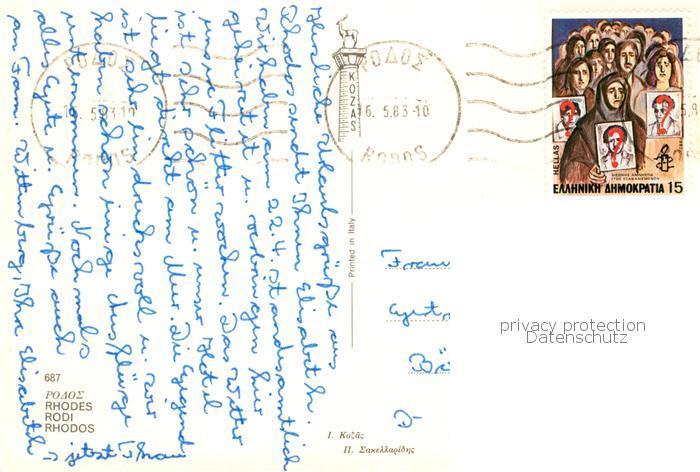 Herzliche Urlaubsgrüße aus
Rhodos sendet Ihnen Elisabeth.
Wir haben am 22.4. standesamtlich
geheiratet u. verbringen hier
unsere Flitterwochen. Das Wetter
ist sehr schön u. unser Hotel
liegt direkt am Meer. Die Gegend
ist sehr eindrucksvoll u. wir
haben schon einige Ausflüge
unternommen. Nochmals
alles Gute u. Grüße auch
an Fam. Wittenberg, Ihre Elisabeth
jetzt
ΡΟΔΟΣ
16. 5.83-10
RODOS
KOZAS
ΡΟΔΟΣ
6. 5.83-10
RODOS
HELLAS
ΔΙΕΘΝΗΣ ΑΜΝΗΣΤΙΑ
ΕΤΟΣ ΕΞΑΦΑΝΙΣΜΕΝΩΝ
ΕΛΛΗΝΙΚΗ ΔΗΜΟΚΡΑΤΙΑ 15
Printed in Italy
privacy protection
Datenschutz
687
ΡΟΔΟΣ
RHODES
RODI
RHODOS
Ι. Κοζᾶς
Π. Σακελλαρίδης